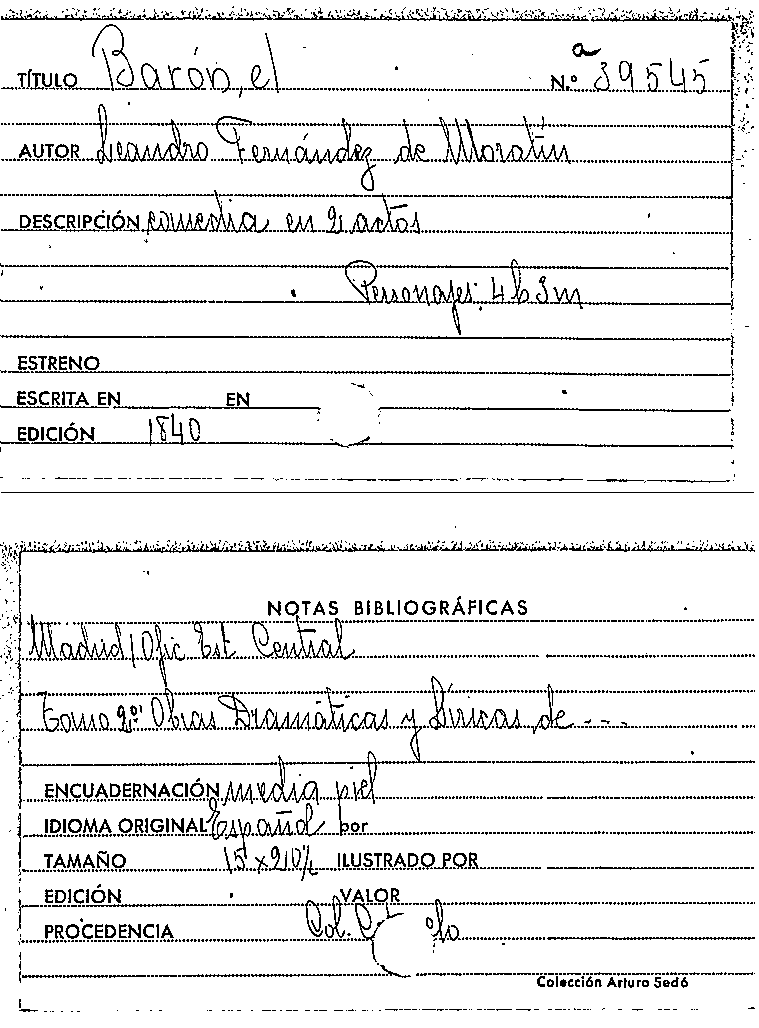 TÍTULO Barón, el N.º a 39545
AUTOR Leandro Fernández de Moratín
DESCRIPCIÓN comedia en 2 actos
Personajes: 4h 3m
ESTRENO
ESCRITA EN EN
EDICIÓN 1840
NOTAS BIBLIOGRÁFICAS
Madrid/Ofic Est Central
Tomo 2º: Obras Dramáticas y Líricas de - - -
ENCUADERNACIÓN media piel
IDIOMA ORIGINAL Español por
TAMAÑO 15 x 21 ILUSTRADO POR
EDICIÓN VALOR
PROCEDENCIA Col.
Colección Arturo Sedó